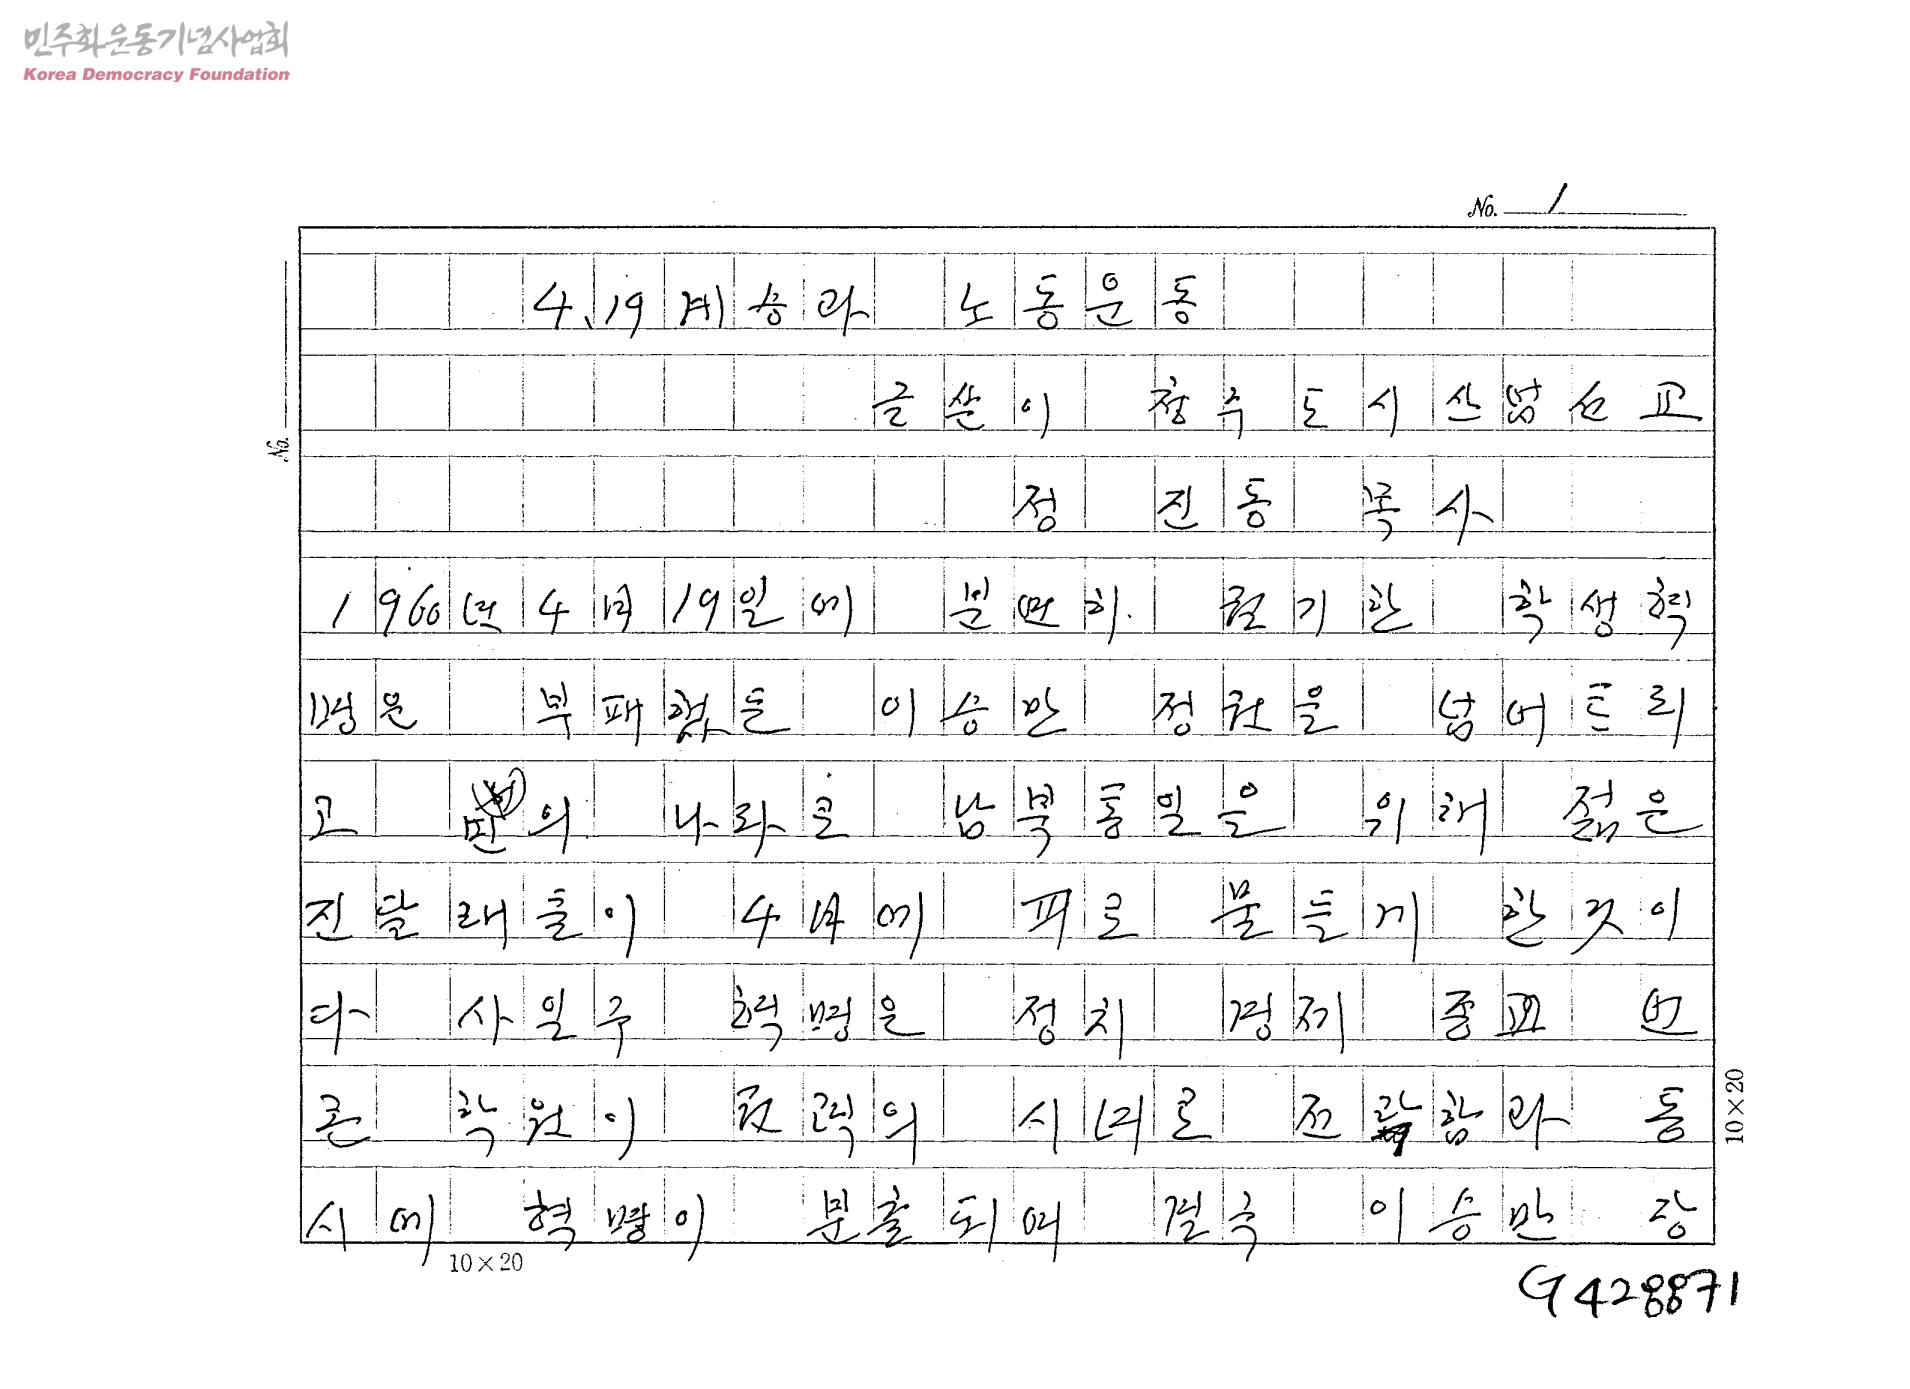 민주화운동기념사업회
Korea Democracy Foundation
No. 1
No.
4.19계승과 노동운동
글쓴이 청주도시산업선교
정 진동 목사
1960년4월19일에 분연히 궐기한 학생혁
명은 부패했든 이승만 정권을 넘어트리
고 민의 나라로 남북통일을 위해 젊은
진달래들이 4월에 피로 물들게 한것이
다 사일구 혁명은 정치 경제 종교 언
론 학원이 권력의 시녀로 전락함과 동
시에 혁명이 분출되여 결국 이승만 장
10×20
10×20
G428871